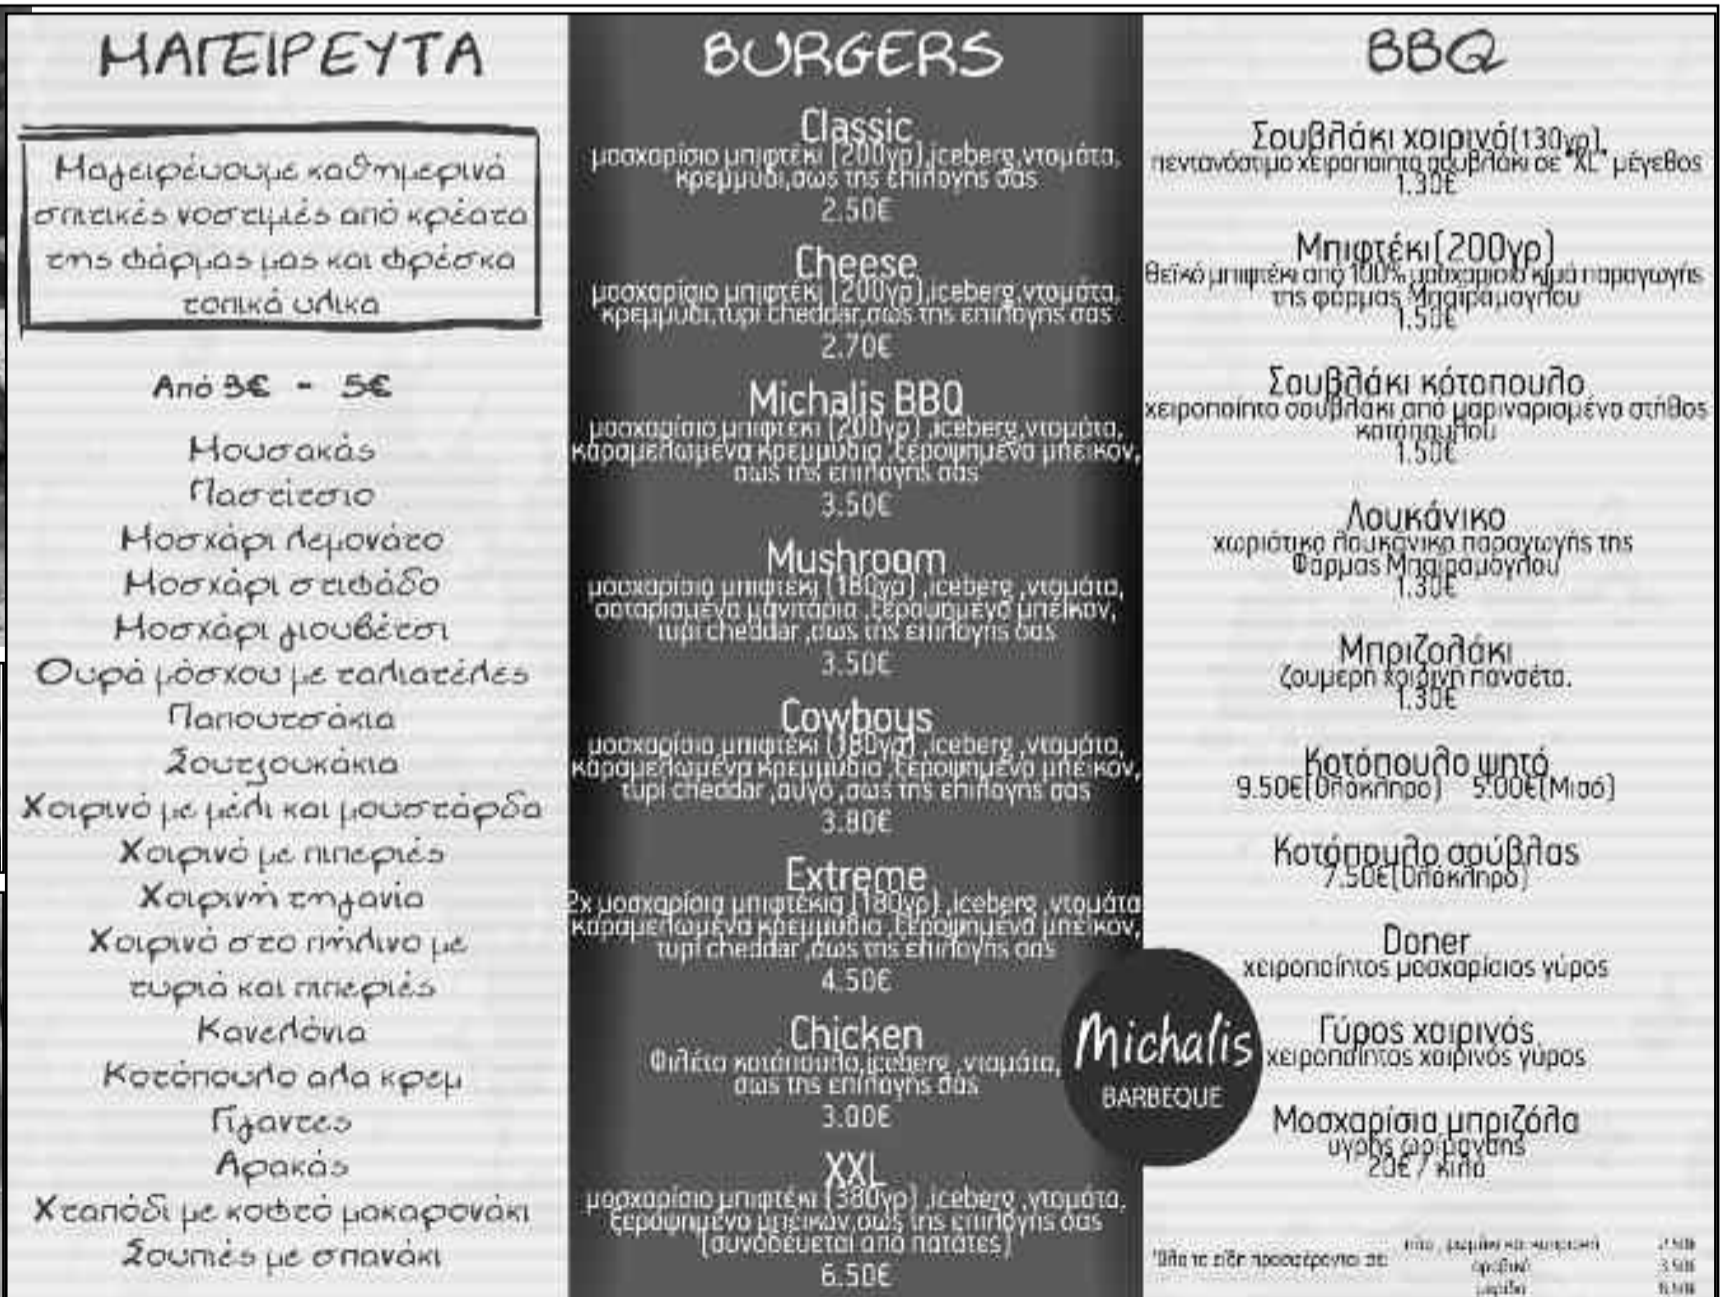 ΜΑΓΕΙΡΕΥΤΑ
Μαγειρεύουμε καθημερινά
σπιτικές νοστιμιές από κρέατα
της φάρμας μας και φρέσκα
τοπικά υλικα
Από 3€ - 5€
Μουσακάς
Παστίτσιο
Μοσχάρι λεμονάτο
Μοσχάρι στιφάδο
Μοσχάρι γιουβέτσι
Ουρά μόσχου με ταλιατέλες
Παπουτσάκια
Σουτζουκάκια
Χοιρινό με μέλι και μουστάρδα
Χοιρινό με πιπεριές
Χοιρινή τηγανία
Χοιρινό στο πήλινο με
τυριά και πιπεριές
Κανελόνια
Κοτόπουλο αλα κρεμ
Γίγαντες
Αρακάς
Χταπόδι με κοφτό μακαρονάκι
Σουπιές με σπανάκι
BURGERS
Classic
μοσχαρίσιο μπιφτέκι (200γρ),iceberg,ντομάτα,
κρεμμύδι,σως της επιλογής σας
2.50€
Cheese
μοσχαρίσιο μπιφτέκι (200γρ),iceberg,ντομάτα,
κρεμμύδι,τυρί cheddar,σως της επιλογής σας
2.70€
Michalis BBQ
μοσχαρίσιο μπιφτέκι (200γρ) ,iceberg,ντομάτα,
καραμελωμένα κρεμμύδια ,ξεροψημένο μπέικον,
σως της επιλογής σας
3.50€
Mushroom
μοσχαρίσιο μπιφτέκι (180γρ) ,iceberg ,ντομάτα,
σοταρισμένα μανιτάρια ,ξεροψημένο μπέικον,
τυρί cheddar ,σως της επιλογής σας
3.50€
Cowboys
μοσχαρίσιο μπιφτέκι (180γρ) ,iceberg ,ντομάτα,
καραμελωμένα κρεμμύδια ,ξεροψημένο μπέικον,
τυρί cheddar ,αυγό ,σως της επιλογής σας
3.80€
Extreme
2x μοσχαρίσια μπιφτέκια (180γρ) ,iceberg ,ντομάτα
καραμελωμένα κρεμμύδια ,ξεροψημένο μπέικον,
τυρί cheddar ,σως της επιλογής σας
4.50€
Chicken
Φιλέτο κοτόπουλο,iceberg ,ντομάτα,
σως της επιλογής σας
3.00€
XXL
μοσχαρίσιο μπιφτέκι (380γρ) ,iceberg ,ντομάτα,
ξεροψημένο μπέικον,σως της επιλογής σας
(συνοδεύεται από πατάτες)
6.50€
BBQ
Σουβλάκι χοιρινό(130γρ),
πεντανόστιμο χειροποίητο σουβλάκι σε "XL" μέγεθος
1.30€
Μπιφτέκι(200γρ)
θεϊκό μπιφτέκι από 100% μοσχαρίσιο κιμά παραγωγής
της φάρμας Μπαιράμογλου
1.50€
Σουβλάκι κότοπουλο
χειροποίητο σουβλάκι από μαριναρισμένο στήθος
κοτόπουλου
1.50€
Λουκάνικο
χωριάτικο λουκάνικο παραγωγής της
Φάρμας Μπαιράμογλου
1.30€
Μπριζολάκι
ζουμερή χοιρινή πανσέτα.
1.30€
Κοτόπουλο ψητό
9.50€(Ολόκληρο) 5.00€(Μισό)
Κοτόπουλο σούβλας
7.50€(Ολόκληρο)
Doner
χειροποίητος μοσχαρίσιος γύρος
Γύρος χοιρινός
χειροποίητος χοιρινός γύρος
Μοσχαρίσια μπριζόλα
υγρής ωρίμανσης
20€ / κιλό
Michalis
BARBEQUE
Όλα τα είδη προσφέρονται σε:
αραβική 3.50€
μερίδα